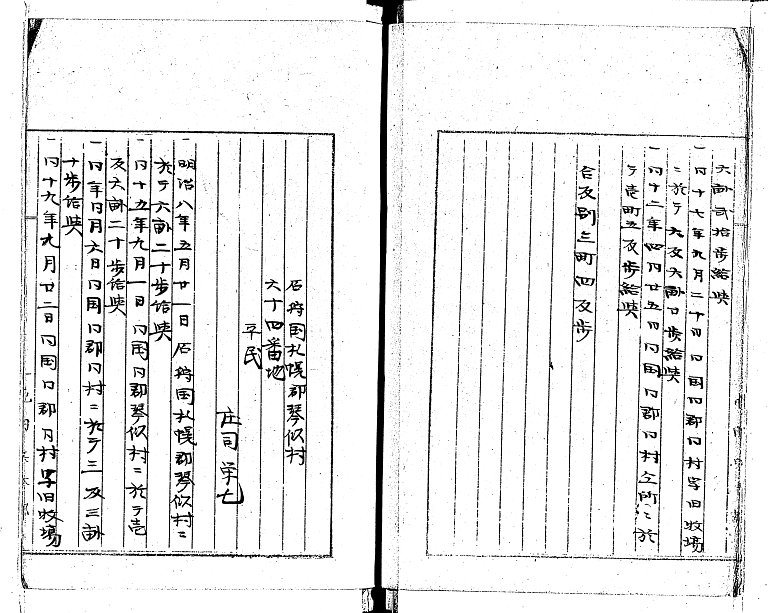 六畝弐拾歩給与
一同十七年九月二十日同国同郡同村字旧牧場
ニ於テ九反六畝廿歩給与
一同十二年四月廿五日同国同郡同村仝所ニ於
テ壱町五反歩給与
合反別三町四反歩
石狩国札幌郡琴似村
六十四番地
平民
庄司栄七
一明治八年五月廿一日石狩国札幌郡琴似村ニ
於テ六畝二十歩給与
一同十五年九月一日同国同郡琴似村ニ於テ壱
反六畝二十歩給与
一同年同月六日同国同郡同村ニ於テ三反三畝
十歩給与
一同十九年九月廿二日同国同郡同村字旧牧場